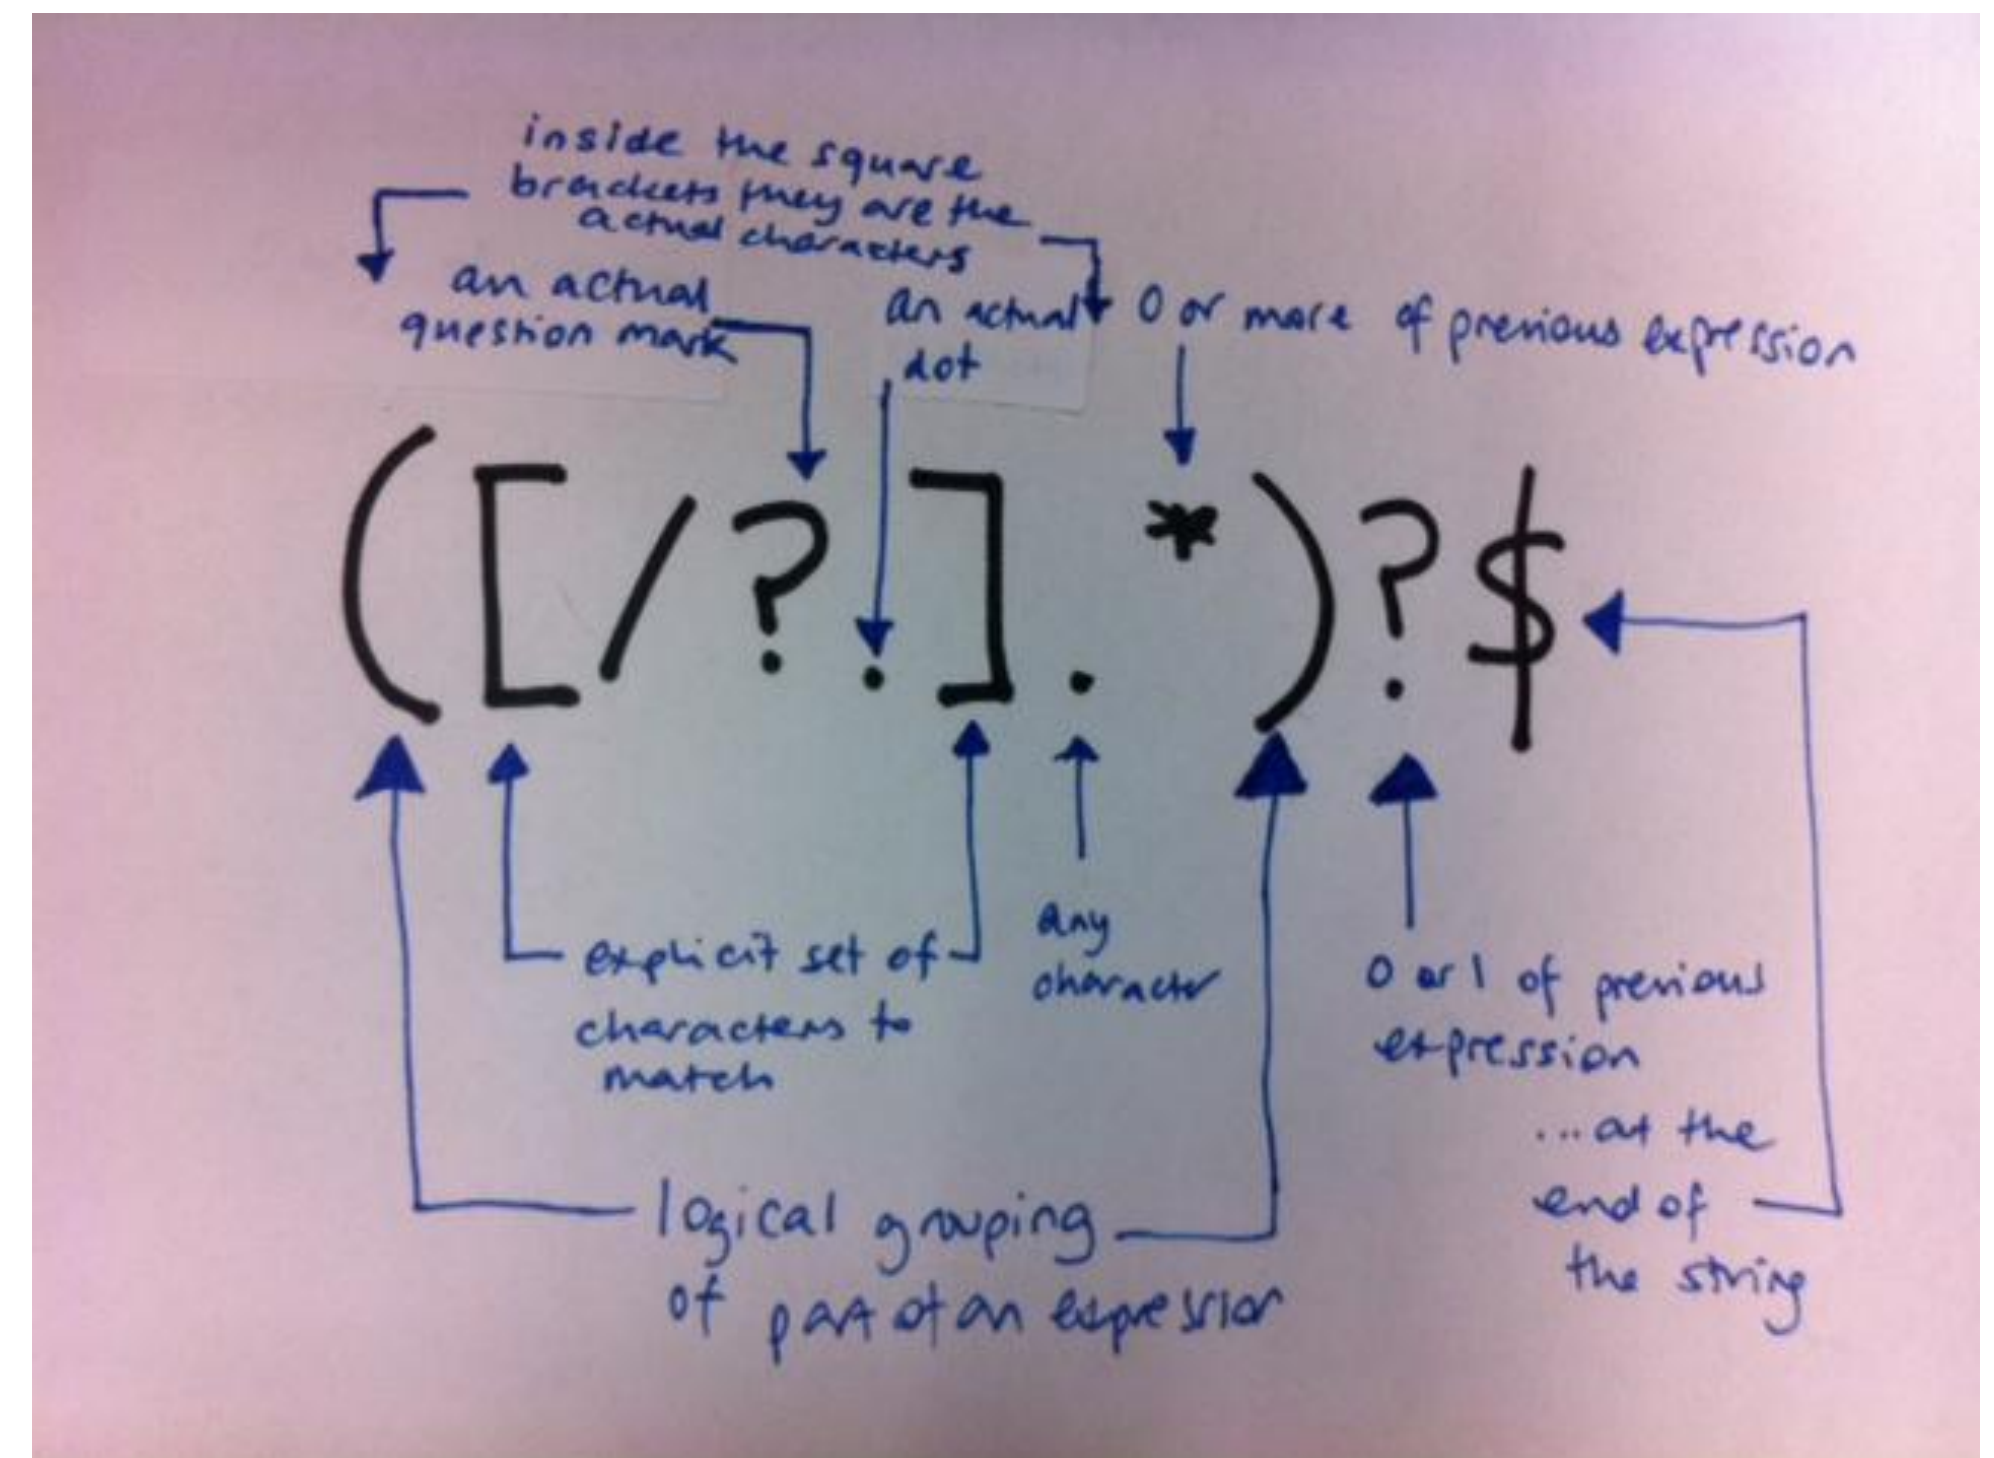 inside the square
brackets they are the
actual characters
an actual
question mark
an actual
dot
0 or more of previous expression
([/?.].*)?$
explicit set of
characters to
match
any
character
0 or 1 of previous
expression
...at the
end of
the string
logical grouping
of part of an expression